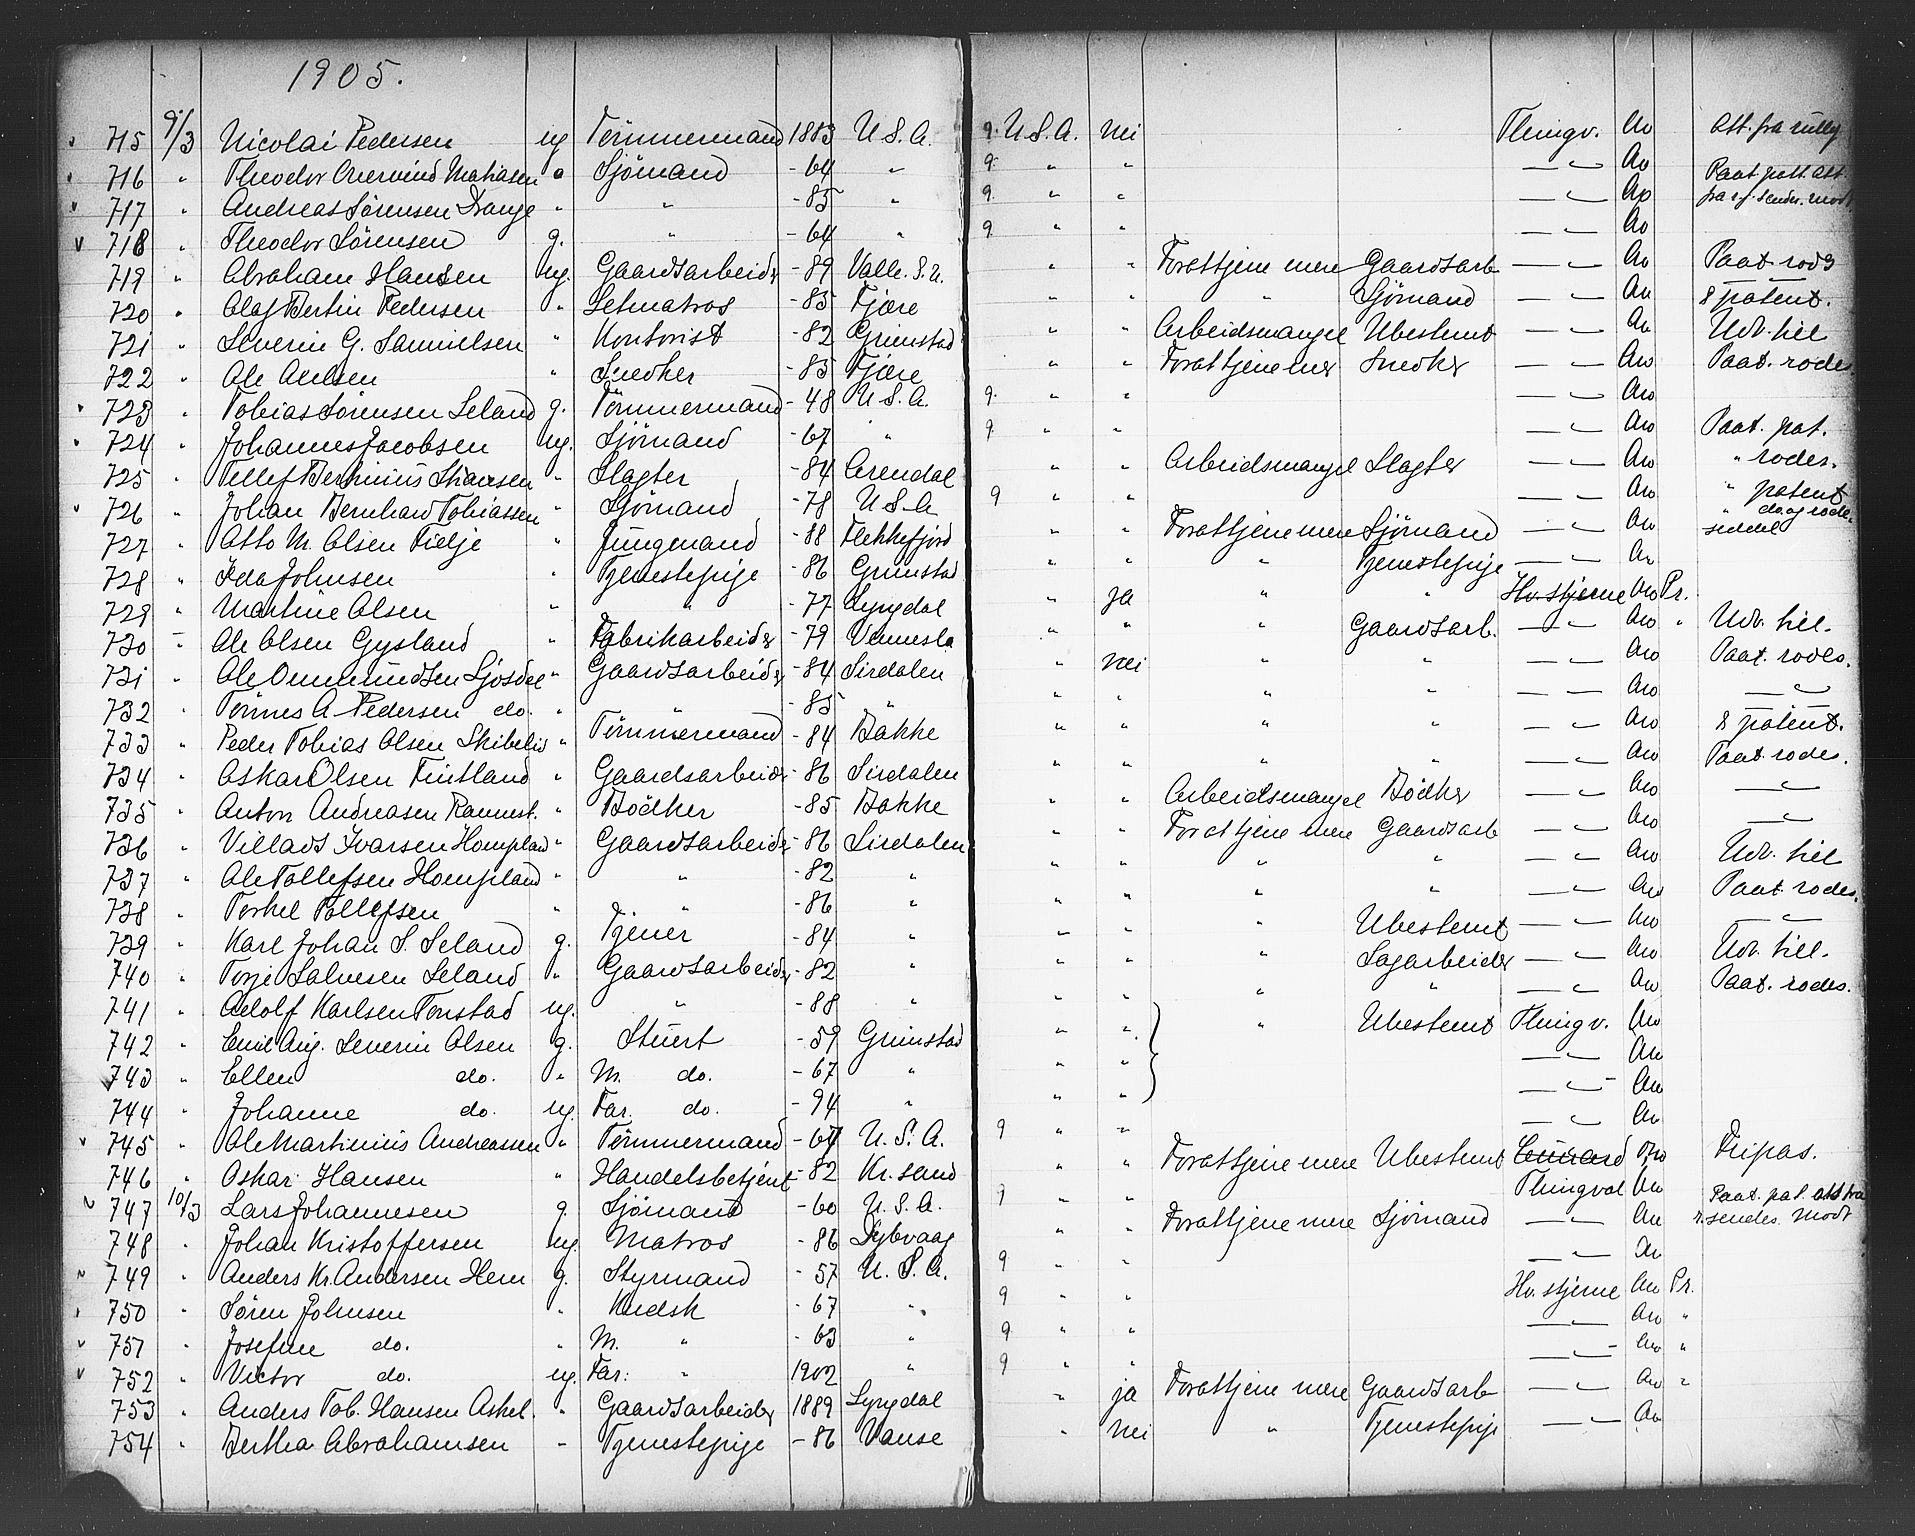 1905.
715 9/3 Nicolai Pedersen ug Tömmermand 1883 U.S.A. 9. U.S.A. nei Thingv. Av Att. fra rully
716 " Theodor Mathiasen " Sjömand -64 " 9. " " — " — Av Paat. patt. att.
717 " Andreas Sørensen " " -85 " 9. " " — " — Av fra r.f. sendes. modt.
718 " Theodor Sørensen g. " -64 " 9. " " — " — Av
719 " Abraham Hansen ug. Gaardsarbeider -89 Valle. S.U. " " Forattjene mere Gaardsarb — " — Av Paat. rods
720 " Olaf Bertin Pedersen " Letmatros -85 Fjære " " " Sjömand — " — Av 8 patent.
721 " Severin G. Samuelsen " Kontorist -82 Grimstad " " Arbeidsmangel Ubestemt — " — Av Udv. till
722 " Ole Olelsen " Snedker -85 Fjære " " Forattjene mer Snedker — " — Av Paat. rodes
723 " Tobias Sørensen Seland g. Tömmermand -48 U.S.A. 9. " " — " — Av
724 " Johannes Jacobsen ug. Sjömand -67 " 9. " " — " — Av Paat. pat.
725 " Tellef Berthinius " Slagter -84 Arendal " " Arbeidsmangel Slagter — " — Av " rodes.
726 " Johan Bernhard Tobiassen " Sjömand -78 U.S.A 9 " " — " — Av " patent
727 " Otto M. Olsen Fidje " Jungmand -88 Flekkefjord " " Forattjene mere Sjömand — " — Av " do. og rode- seddel
728 " Ida Johnsen " Tjenestepige -86 Grimstad " " " Tjenestepige — " — Av
729 " Martine Olsen " " -77 Lyngdal " ja " " Hv. stjerne Av Pr.
730 " Ole Olsen Gysland " Fabrikarbeider -79 Vennesla " " " Gaardsarb. — " — Av " Udv. till.
731 " Ole Ommundsen " Gaardsarbeider -84 Sirdalen " nei " " — " — Av Paat. rodes.
732 " Tönnes A. Pedersen do. " " -85 " " " " " — " — Av — " —
733 " Peder Tobias Olsen Skibeli " Tömmermand -84 Bakke " " " " — " — Av 8 patent.
734 " Oskar Olsen Fintland " Gaardsarbeider -86 Sirdalen " " " " — " — Av Paat. rodes.
735 " Anton Andreasen Rannest. " Bödker -85 Bakke " " Arbeidsmangel Bödker — " — Av — " —
736 " Villads Ivarsen Hompland " Gaardsarbeider -86 Sirdalen " " Forattjene mere Gaardsarb — " — Av — " —
737 " Ole Tollefsen Hompland " " -82 " " " " " — " — Av Udv. till
738 " Torkel Tollefsen " " -86 " " " " " — " — Av Paat. rodes.
739 " Karl Johan S. Seland g. Tjener -84 " " " " Ubestemt — " — Av — " —
740 " Torje Salvesen Seland " Gaardsarbeider -82 " " " " Sagarbeider — " — Av Udv. till.
741 " Adolf Karlsen Tonstad ug. " -88 " " " " " — " — Av Paat. rodes.
742 " Emil Aug. Severin Olsen g. Stuert -59 Grimstad " " " Ubestemt Thingv. Av
743 " Ellen do. " M. do. -67 " " " — " — Av
744 " Johanne do. ug. Far. do. -94 " " " — " — Av
745 " Ole Martinius Andreassen " Tömmermand -67 U.S.A. 9 " " — " — Av
746 " Oskar Hansen " Handelsbetjent -82 Kr. sand " " Forattjene mere Ubestemt Cunard Av Fripas.
747 10/3 Lars Johannesen g. Sjömand -60 U.S.A. 9 " " Thingval Av Paat. pat. att fra
748 " Johan Kristoffersen ug. Matros -86 Dybvaag " " Forattjene mere Sjömand — " — Av r. sendes. Modt
749 " Anders Kr. Andersen Hem g. Styrmand -57 U.S.A. 9 " " — " — Av
750 " Søren Johnsen " Kudsk -67 " 9 " " Hv. stjerne Av Pr.
751 " Josefine do. " M. " -63 " 9 " " — " — Av "
752 " Victor do. ug. Far. " 1902 " 9 " " — " — Av "
753 " Anders Tob. Hansen Askel. " Gaardsarbeider 1889 Lyngdal " ja Forattjene mere Gaardsarb — " — Av "
754 " Bertha Abrahamsen " Tjenestepige -86 Vanse " nei " Tjenestepige — " — Av